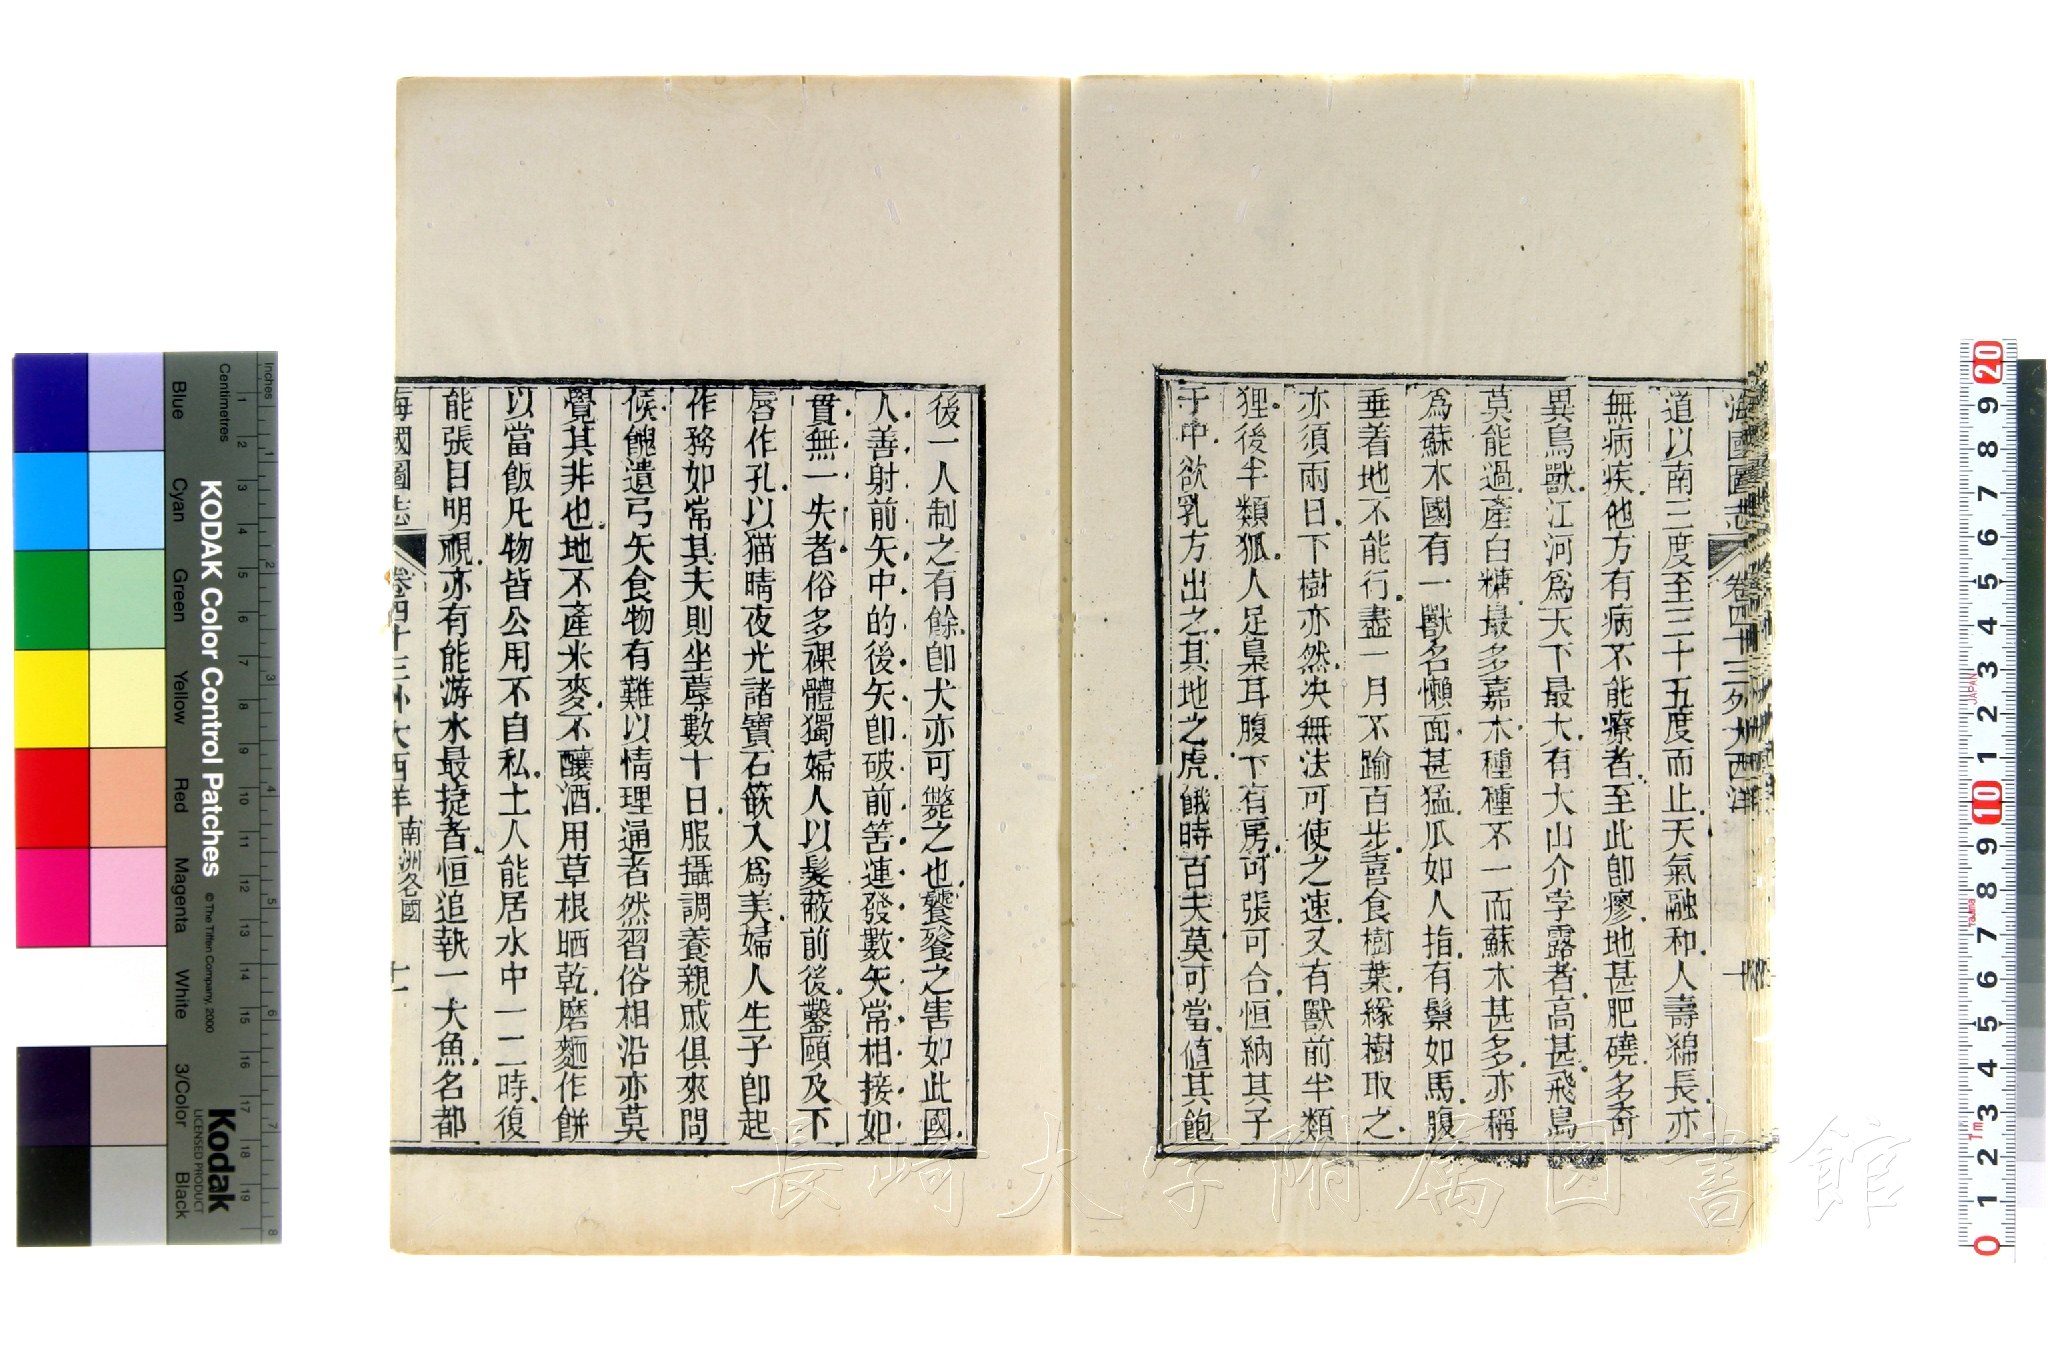 海國圖志 卷四十三外大西洋
道以南三度至三十五度而止天氣融和人壽綿長亦
無病疾他方有病不能療者至此卽瘳地甚肥磽多奇
異鳥獸江河爲天下最大有大山介孛露者高甚飛鳥
莫能過產白糖最多嘉木種種不一而蘇木甚多亦稱
爲蘇木國有一獸名懶面甚猛爪如人指有鬃如馬腹
垂着地不能行盡一月不踰百步喜食樹葉緣樹取之
亦須兩日下樹亦然决無法可使之速又有獸前半類
狸後半類狐人足梟耳腹下有房可張可合恒納其子
于中欲乳方出之其地之虎餓時百夫莫可當値其飽
後一人制之有餘卽犬亦可斃之也饕餮之害如此國
人善射前矢中的後矢卽破前筈連發數矢常相接如
貫無一失者俗多裸體獨婦人以髮蔽前後鑿頤及下
唇作孔以猫睛夜光諸寶石篏入爲美婦人生子卽起
作務如常其夫則坐蓐數十日服攝調養親戚俱來問
候餽遺弓矢食物有難以情理通者然習俗相沿亦莫
覺其非也地不產米麥不釀酒用草根晒乾磨麵作餅
以當飯凡物皆公用不自私土人能居水中一二時復
能張目明視亦有能游水最捷者恒追執一大魚名都
海國圖志 卷四十三外大西洋 南洲各國 十一
KODAK Color Control Patches © The Tiffen Company, 2000
Kodak
LICENSED PRODUCT
Inches
Centimetres
Blue
Cyan
Green
Yellow
Red
Magenta
White
3/Color
Black
長崎大学附属図書館